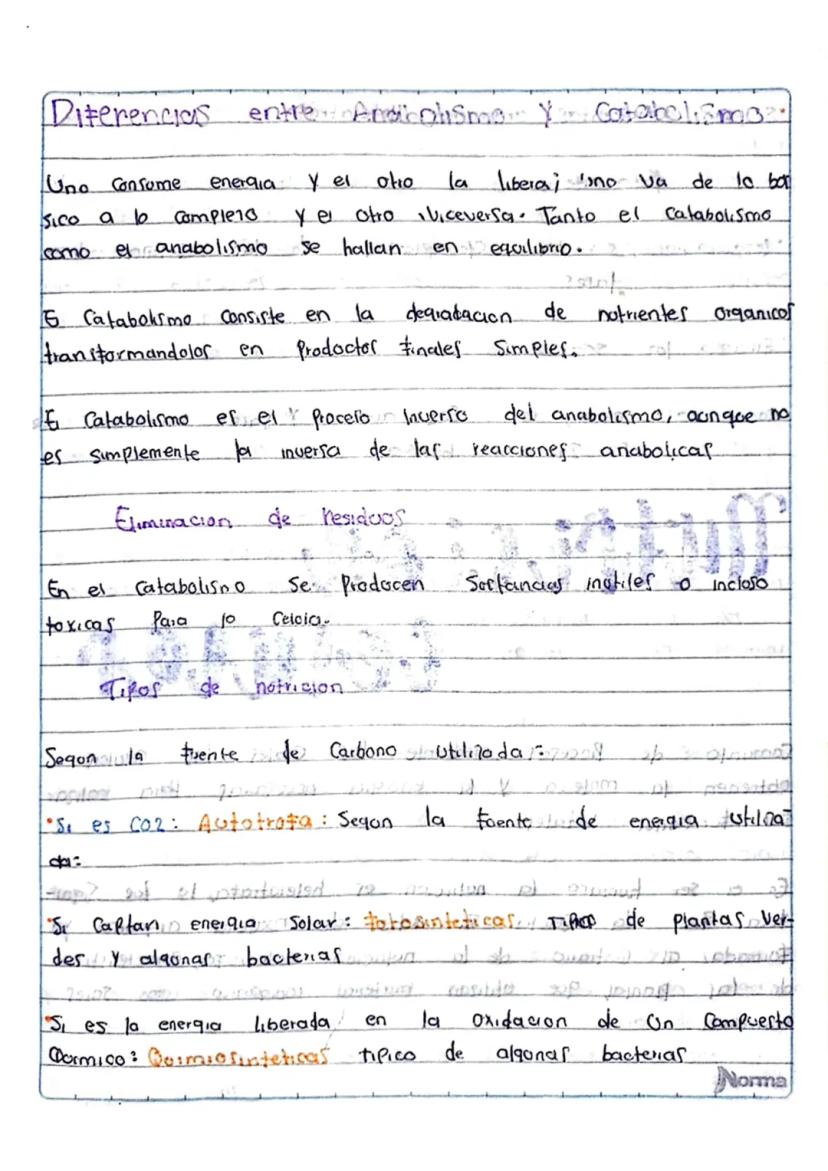 Diferencias entre Anabolismo y Catabolismo.
Uno consume energia y el otro la libera; uno va de lo ba
sico a lo complejo y el otro viceversa. Tanto el catabolismo
como el anabolismo se hallan en equilibrio.
El Catabolismo consiste en la degradacion de nutrientes organicos
transformandolos en Productos finales Simples.
El Catabolismo es el Proceso Inverso del anabolismo, aunque no
es simplemente la inversa de las reacciones anabolicas
Eliminacion de residuos
En el catabolismo se Producen Sustancias inutiles o incluso
toxicas Para la Celula.
Tipos de nutricion
Segun la fuente de Carbono utilizada:
•Si es CO2: Autotrofa: Segun la fuente de energia utiliza-
da:
•Si Captan energia Solar: fotosinteticas TIPICO de plantas ver-
des y algunas bacterias
•Si es la energia liberada en la oxidacion de un compuesto
Quimico: Quimiosinteticas tipico de algunas bacterias
Norma